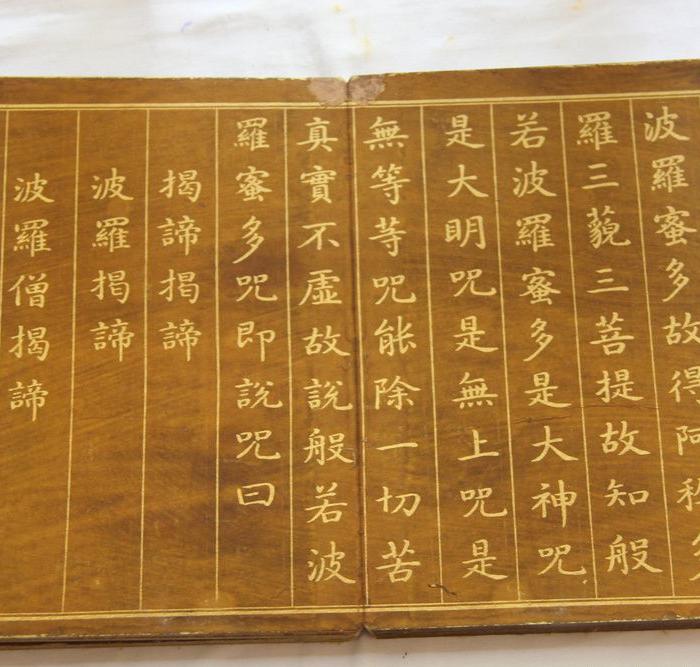 波羅蜜多故得阿耨多
羅三藐三菩提故知般
若波羅蜜多是大神咒
是大明咒是無上咒是
無等等咒能除一切苦
真實不虛故說般若波
羅蜜多咒即說咒曰
揭諦揭諦
波羅揭諦
波羅僧揭諦